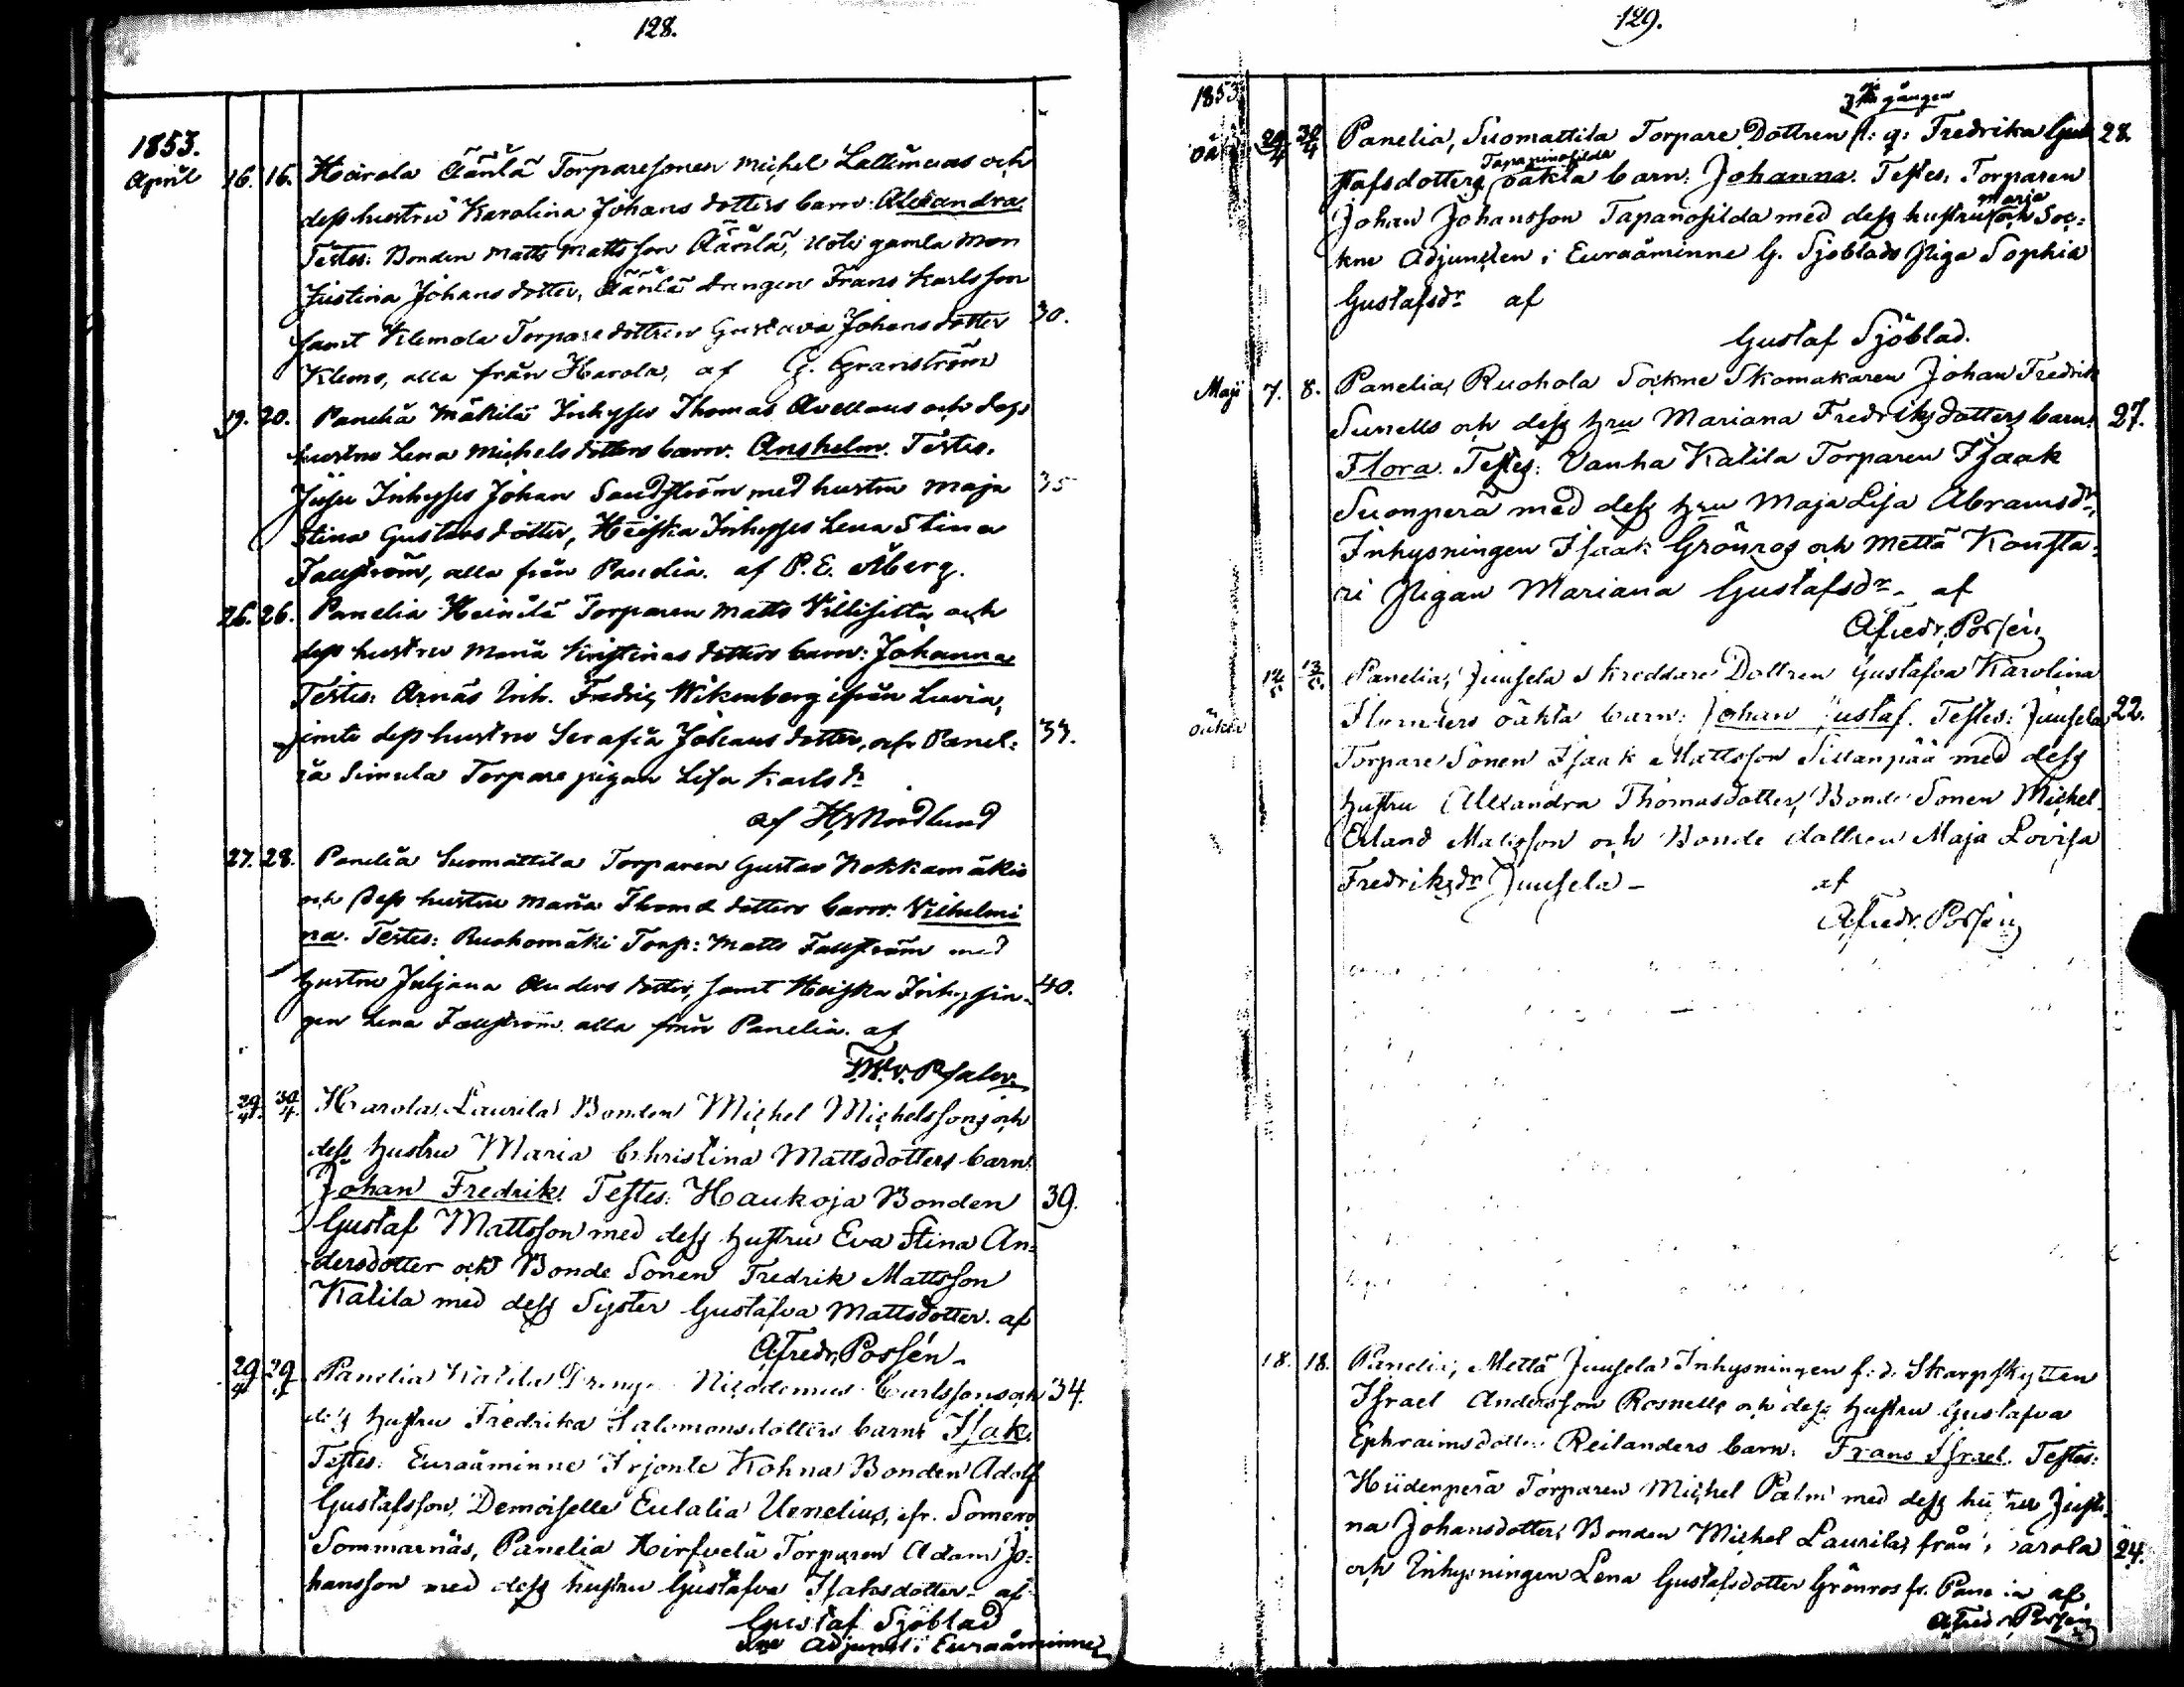 128.
1853.
April 16. 16. Harola Äänlä Torparesonen Michel Lallimuas och
dess hustru Karolina Johansdotters barn: Alexandra
Testes: Bonden Matts Mattsson Äänlä, Uoti gamla mon
Justina Johansdotter, Äänlä drengen Frans Karlsson
samt Klemola Torparedottren Gustava Johansdotter 30.
Klemo, alla från Harola, af G. Granström
19. 20. Panelia Mäkilä Inhyses Thomas Avellans och dess
hustru Lena Michelsdotters barn: Anshelm. Testes.
Juju Inhyses Johan Sandström med hustru Maja 35
Stina Gustavsdotter, Heiska Inhyses Lena Stina
Fallström, alla från Panelia. af P.E. Åberg.
26. 26. Panelia Heinilä Torparen Matts Villisitta och
dess hustru Maria Kristinas dotters barn: Johanna
Testes: Arnäs Inh. Fredrig Wikenberg ifrån Luvia,
jemte dess hustru Serafia Johansdotter, och Panel: 33.
ia Simula Torpare pigan Lisa Karlsdr
af Nordlund
27. 28. Panelia Suomattila Torparen Gustav Nokkamäkis
och dess hustru Maria Thomædotters barn: Vilhelmi
na. Testes: Ruohomäki Torp: Matts Fallström med
hustru Juljana Andersdotter, samt Heiska Inhysin- 40.
gen Lena Fallström. alla från Panelia. af
F.W. v. Psaler.
29/4. 30/4. Harola, Laurila Bonden Michel Michelssons och
dess hustru Maria Christina Mattsdotters barn:
Johan Fredrik. Testes: Haukoja Bonden 39.
Gustaf Mattsson med dess hustru Eva Stina An=
dersdotter och Bonde Sonen Fredrik Mattsson
Katila med dess Syster Gustafva Mattsdotter. af
AFredr. Possén.
29/4 29 Panelia Katila Dreng Nicodemus Carlssons och 34.
dess hustru Fredrika Salomonsdotters barn: Isak.
Testes: Euraåminne Irjonte Kohna Bonden Adolf
Gustafsson, Demoiselle Eulalia Uenelius, ifr. Somero
Sommarnäs, Panelia Hirfvelä Torparen Adam Jo=
hansson med dess hustru Gustafva Isaksdotter. af
Gustaf Sjöblad
Adjunct i Euraåminne
129.
1853.
3dje gången
29/4 30/4 Panelia, Suomattila Torpare Dottren Fredrika Gus 28.
Tapaninosilda
tafsdotters oäkta barn: Johanna. Testes: Torparen
Maria
Johan Johansson Tapanosilda med dess hustru och Soc=
kne Adjuncten i Euraåminne G. Sjöblads Piga Sophia
Gustafsdr af
Gustaf Sjöblad.
Maji 7. 8. Panelia, Ruohola Sockne Skomakaren Johan Fredrik
Sunells och dess hru Mariana Fredriksdotters barn: 27.
Flora. Testes: Vanha Katila Torparen Isaak
Suonperä med dess hru Maja Lisa Abramsdr,
Inhysningen Isaak Grönros och Mettä Konsta=
ri Pigan Mariana Gustafsdr. af
AFredr. Possén
12/5 13/5. Panelia, Juusela Skreddare Dottren Gustafva Karolina
oäkta Flemders oäkta barn: Johan Gustaf. Testes: Juusela 22.
Torpare Sonen Isaak Mattsson Sillanpää med dess
hustru Alexandra Thomasdotter, Bonde Sonen Michel
Erland Matsson och Bonde dottren Maja Lovisa
Fredriksdr Juusela - af
AFredr. Possén
18. 18. Panelia, Mettä Juusela Inhysningen f: d. Skarpskytten
Israel Andersson Rosnells och dess hustru Gustafva
Ephraimsdotter Reilanders barn: Frans Israel. Testes:
Hiidenperä Torparen Michel Palm med dess hustru Justi=
na Johansdotter, Bonden Michel Laurila, från Harola 24.
och Inhysningen Lena Gustafsdotter Grönros fr. Panelia af
AFredr. Possén